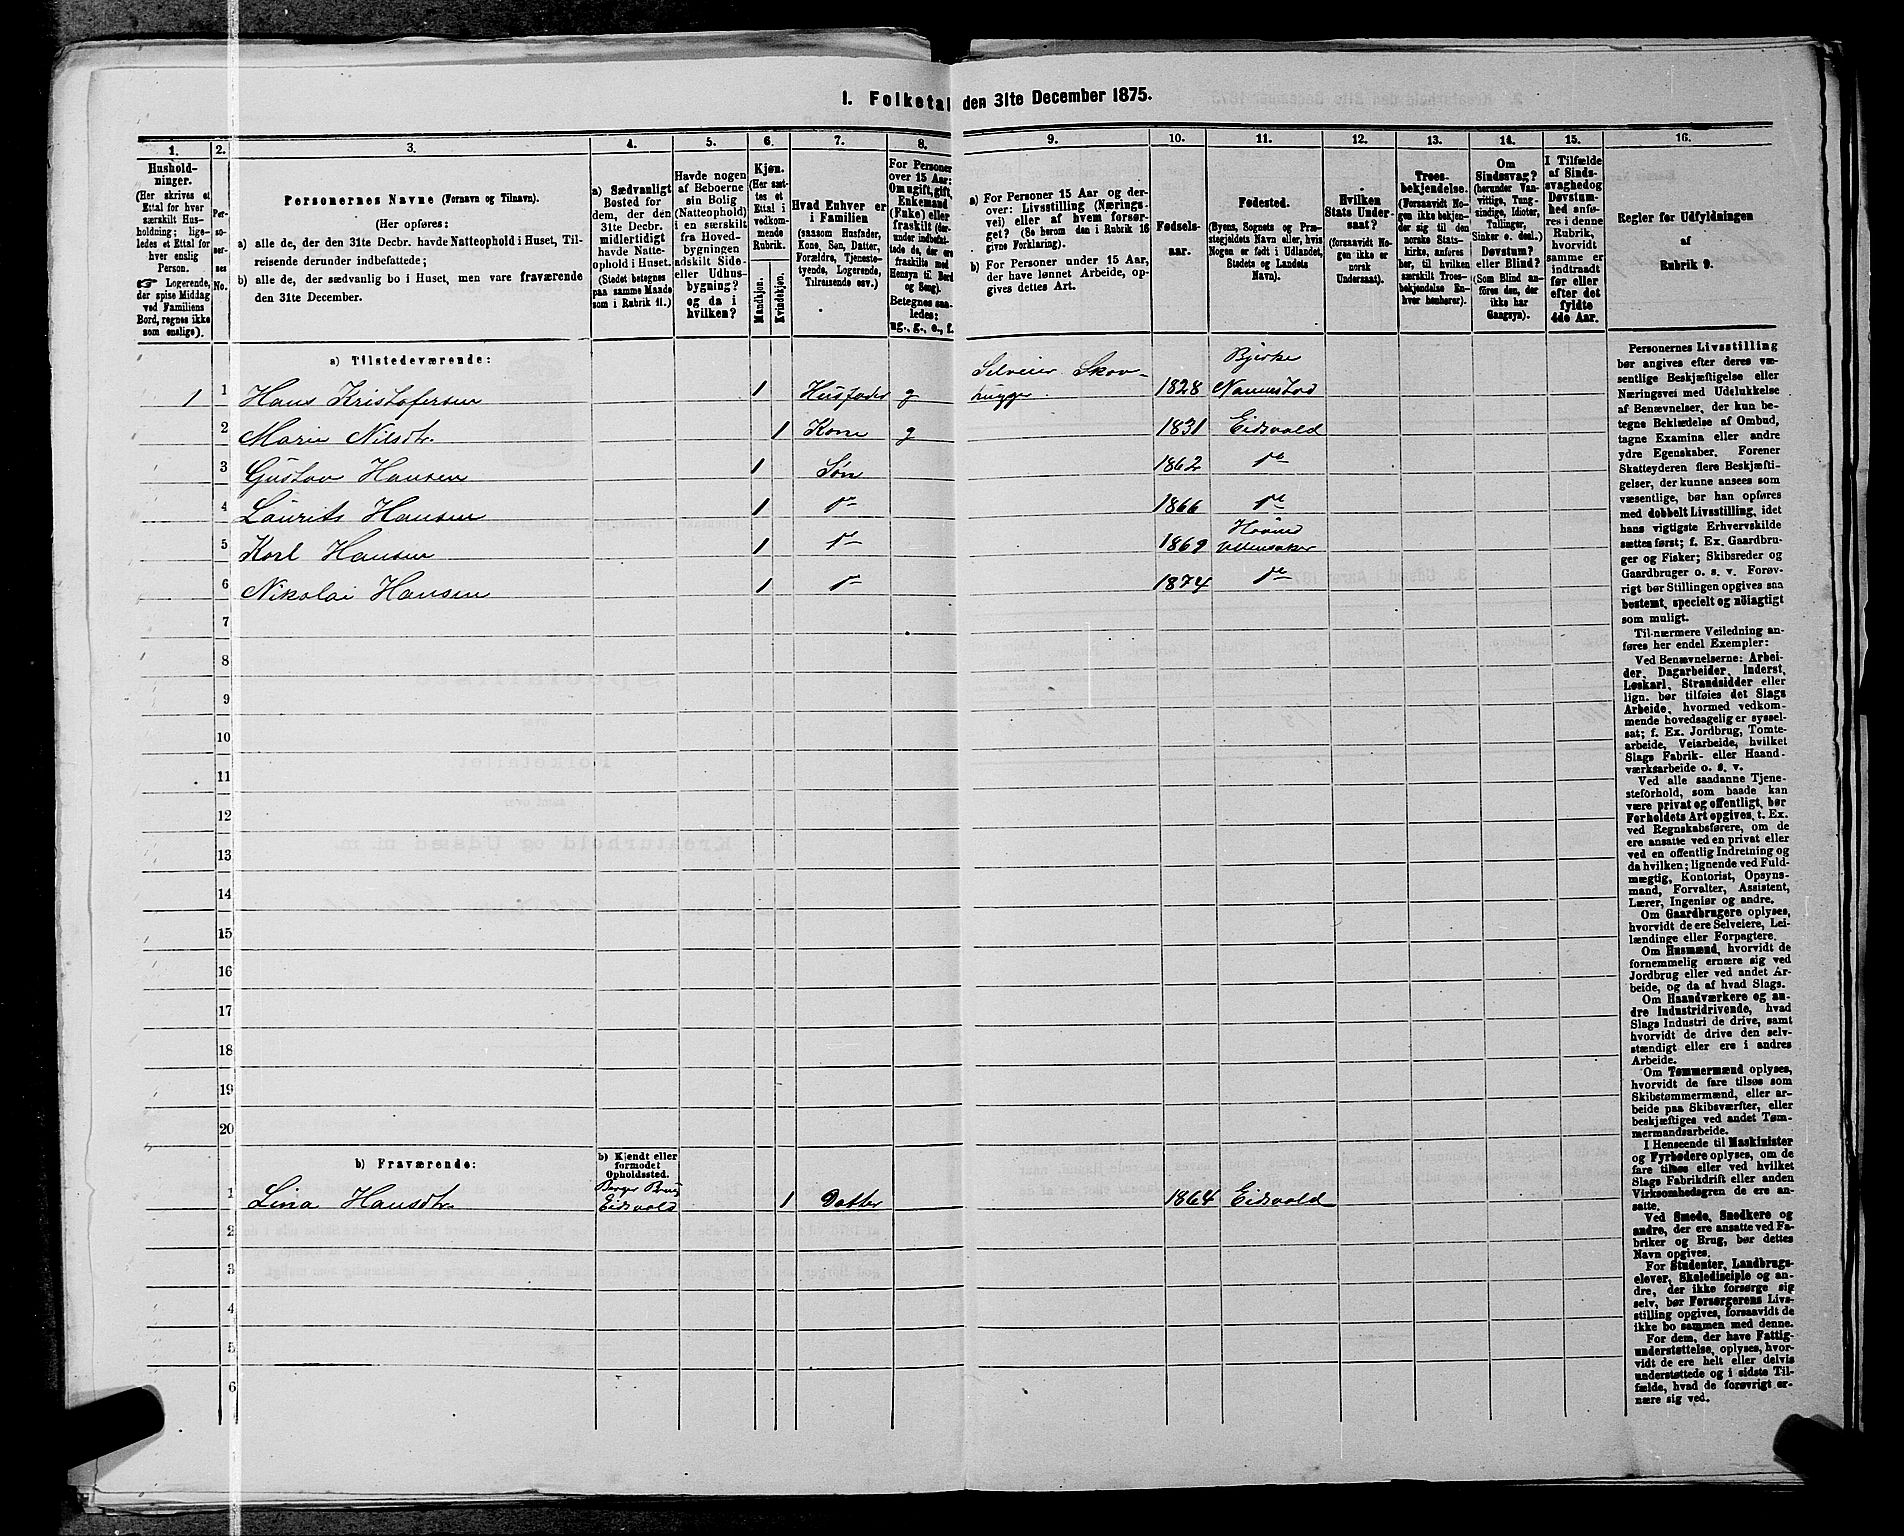 I. Folketal den 31te December 1875.
1. 2. 3. 4. 5. 6. 7. 8. 9. 10. 11. 12. 13. 14. 15. 16.
Hushold-
ninger.
(Her skrives et
Ettal for hver
særskilt Hus-
holdning; lige-
ledes et Ettal for
hver enslig
Person.
☞ Logerende,
der spise Middag
ved Familiens
Bord, regnes ikke
som enslige).
Per-
so-
ner-
nes
No.
Personernes Navne (Fornavn og Tilnavn).
(Her opføres:
a) alle de, der den 31te Decbr. havde Natteophold i Huset, Til-
reisende derunder indbefattede;
b) alle de, der sædvanlig bo i Huset, men vare fraværende
den 31te December.
a) Sædvanligt
Bosted for
dem, der den
31te Decbr.
midlertidigt
havde Natte-
ophold i Huset.
(Stedet betegnes
paa samme Maade
som i Rubrik 11.)
Havde nogen
af Beboerne
sin Bolig
(Natteophold)
i en særskilt
fra Hoved-
bygningen
adskilt Side-
eller Udhus-
bygning?
og da i
hvilken?
Kjøn.
(Her sæt-
tes et
Ettal i
vedkom-
mende
Rubrik.
Mandkjøn.
Kvindekjøn.
Hvad Enhver er
i Familien
(saasom Husfader,
Kone, Søn, Datter,
Forældre, Tjeneste-
tyende, Logerende,
Tilreisende osv.)
For Personer
over 15 Aar:
Om ugift, gift,
Enkemand
(Enke) eller
fraskilt (der-
under indbefat-
tede de, der ere
fraskilte med
Hensyn til Bord
og Seng).
Betegnes saa-
ledes:
ug., g., e., f.
a) For Personer 15 Aar og der-
over: Livsstilling (Nærings-
vei) eller af hvem forsør-
get? (Se herom den i Rubrik 16
givne Forklaring).
b) For Personer under 15 Aar,
der have lønnet Arbeide, op-
gives dettes Art.
Fødsels-
aar.
Fødested.
(Byens, Sognets og Præ-
stegjeldets Navn eller, hvis
Nogen er født i Udlandet,
Stedets og Landets
Navn).
Hvilken
Stats Under-
saat?
(forsaavidt No-
gen ikke er
norsk
Undersaat).
Troes-
bekjendelse.
(Forsaavidt No-
gen ikke bekjen-
der sig til den
norske Stats-
kirke, anføres
her, til hvilken
særskilt Troes-
bekjendelse En-
hver henhører).
Om
Sindssvag?
(herunder Van-
vittige, Tung-
sindige, Idioter,
Tullinger,
Sinker o. desl.)
Døvstum?
eller Blind?
(Som Blind an-
føres den, der
ikke har
Gangsyn).
I Tilfælde
af Sinds-
svaghed og
Døvstum-
hed anfø-
res i denne
Rubrik,
hvorvidt
samme er
indtraadt
før eller
efter det
fyldte
4de Aar.
Regler for Udfyldningen
af
Rubrik 9.
a) Tilstedeværende:
1 1 Hans Kristofersen 1 Husfader g Selveier Skov-
hugger. 1828 Bjerke
Nannestad
2 Marie Nilsdtr. 1 Kone g 1831 Eidsvold
3 Gustav Hansen 1 Søn 1862 do
4 Laurits Hansen 1 do 1866 do
5 Karl Hansen 1 do 1869 Hovind
Ullensaker
6 Nikolai Hansen 1 do 1874 do
7
8
9
10
11
12
13
14
15
16
17
18
19
20
b) Fraværende:
b) Kjendt eller
formodet
Opholdssted.
1 Lina Hansdtr. Berger Brug
Eidsvold 1 Datter 1864 Eidsvold
2
3
4
5
6
Personernes Livsstilling
bør angives efter deres væ-
sentlige Beskjæftigelse eller
Næringsvei med Udelukkelse
af Benævnelser, der kun be-
tegne Beklædelse af Ombud,
tagne Examina eller andre
ydre Egenskaber. Forener
Skatteyderen flere Beskjæfti-
gelser, der kunne ansees som
væsentlige, bør han opføres
med dobbelt Livsstilling, idet
hans vigtigste Erhvervskilde
sættes først; f. Ex. Gaardbru-
ger og Fisker; Skibsreder og
Gaardbruger o. s. v. Forøv-
rigt bør Stillingen opgives saa
bestemt, specielt og nøiagtigt
som muligt.
Til nærmere Veiledning an-
føres her endel Exempler:
Ved Benævnelserne: Arbei-
der, Dagarbeider, Inderst,
Løskarl, Strandsidder eller
lign. bør tilføies det Slags
Arbeide, hvormed vedkom-
mende hovedsagelig er syssel-
sat; f. Ex. Jordbrug, Tomte-
arbeide, Veiarbeide, hvilket
Slags Fabrik- eller Haand-
værksarbeide o. s. v.
Ved alle saadanne Tjene-
steforhold, som baade kan
være privat og offentligt, bør
Forholdets Art opgives, t. Ex.
ved Regnskabsførere, om de
ere ansatte ved en privat eller
ved en offentlig Indretning og
da hvilken; lignende ved Fuld-
mægtig, Kontorist, Opsyns-
mand, Forvalter, Assistent,
Lærer, Ingeniør og andre.
Om Gaardbrugere oplyses,
hvorvidt de ere Selveiere, Lei-
lændinge eller Forpagtere.
Om Husmænd, hvorvidt de
fornemmelig ernære sig ved
Jordbrug eller ved andet Ar-
beide, og da af hvad Slags.
Om Haandværkere og an-
dre Industridrivende, hvad
Slags Industri de drive, samt
hvorvidt de drive den selv-
stændigt eller ere i andres
Arbeide.
Om Tømmermænd oplyses,
hvorvidt de fare tilsøs som
Skibstømmermænd, eller ar-
beide paa Skibsværfter, eller
beskjæftiges ved andet Tøm-
mermandsarbeide.
I Henseende til Maskinister
og Fyrbødere oplyses, om de
fare tilsøs eller ved hvilket
Slags Fabrikdrift eller anden
Virksomhedsgren de ere an-
satte.
Ved Smede, Snedkere og
andre, der ere ansatte ved Fa-
briker og Brug, bør dettes
Navn opgives.
For Studenter, Landbrugs-
elever, Skoledisciple og an-
dre, der ikke forsørge sig
selv, bør Forsørgerens Livs-
stilling opgives, forsaavidt de
ikke bo sammen med denne.
For dem, der have Fattig-
understøttelse, oplyses, hvor-
vidt de ere helt eller delvis
understøttede og i sidste Til-
fælde, hvad de forøvrigt er-
nære sig ved.